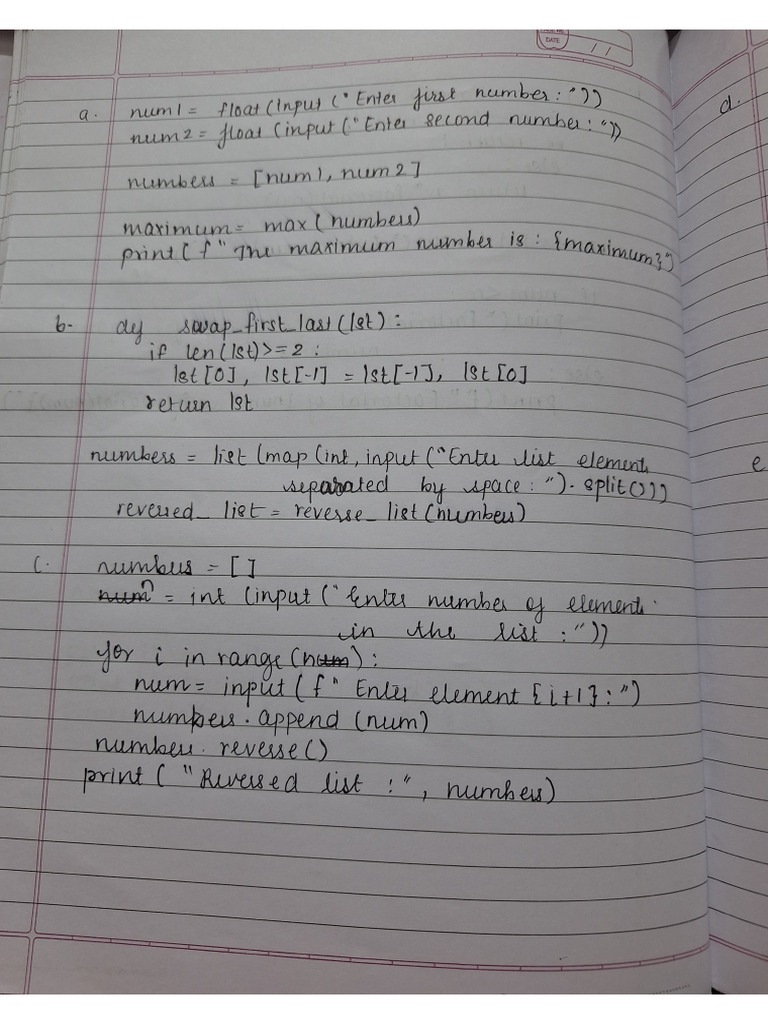 DATE
/ /
a. num1 = float(Input ("Enter first number : "))
num2 = float (input ("Enter second number : "))
numbers = [num1, num2]
maximum = max (numbers)
print( f "The maximum number is : {maximum}")
b- def swap_first_last(lst) :
if len(lst)>=2 :
lst[0], lst[-1] = lst[-1], lst[0]
return lst
numbers = list (map (int, input ("Enter list elements
separated by space : ").split()))
reversed_ list = reverse_ list (numbers)
c. numbers = [ ]
n = int (input ("Enter number of elements
in the list : "))
for i in range (n) :
num = input ( f " Enter element {i+1} : ")
numbers.append (num)
numbers.reverse()
print ( "Reversed list : ", numbers)
d.
e